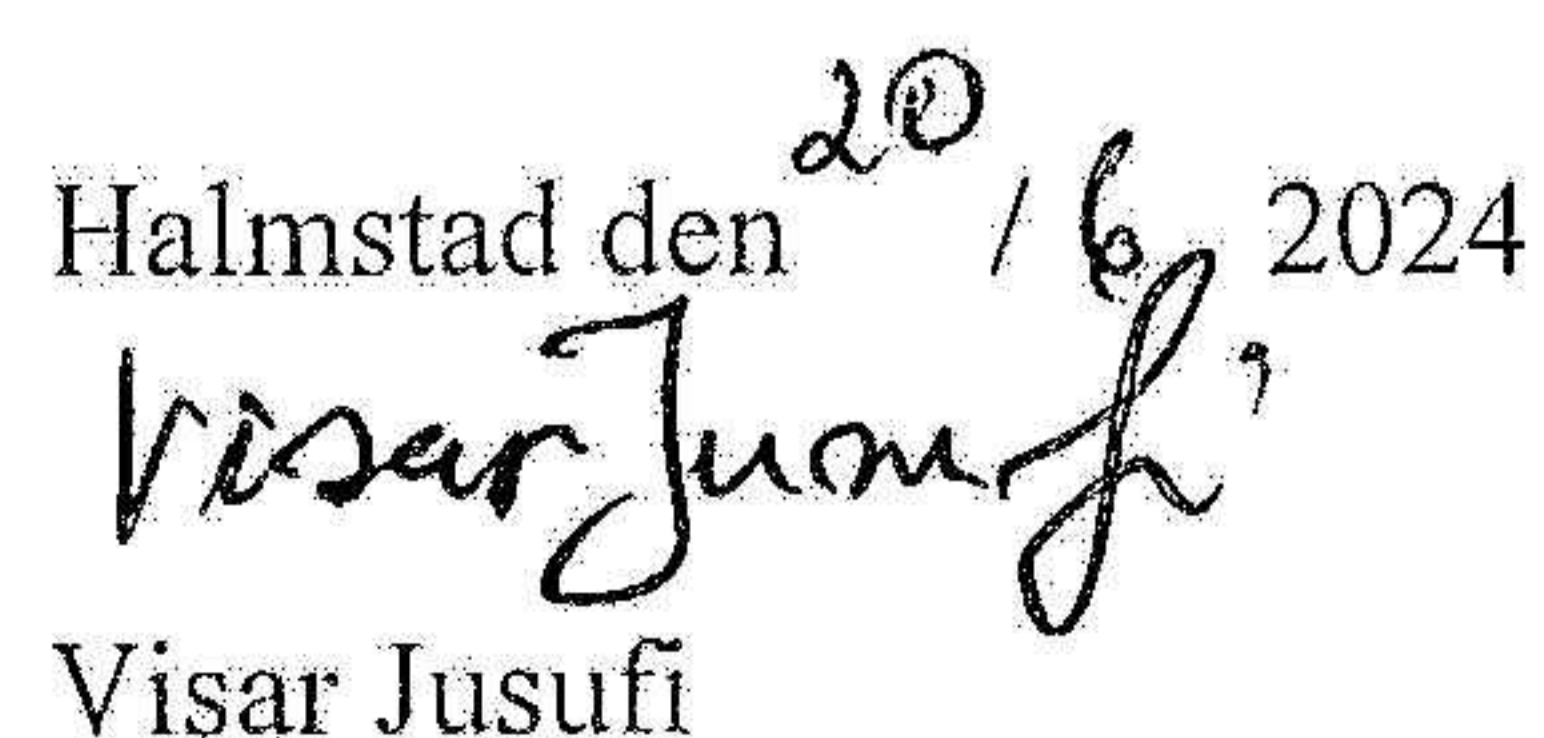 Halmstad den 20 / 6 2024
Visar Jusufi
Visar Jusufi